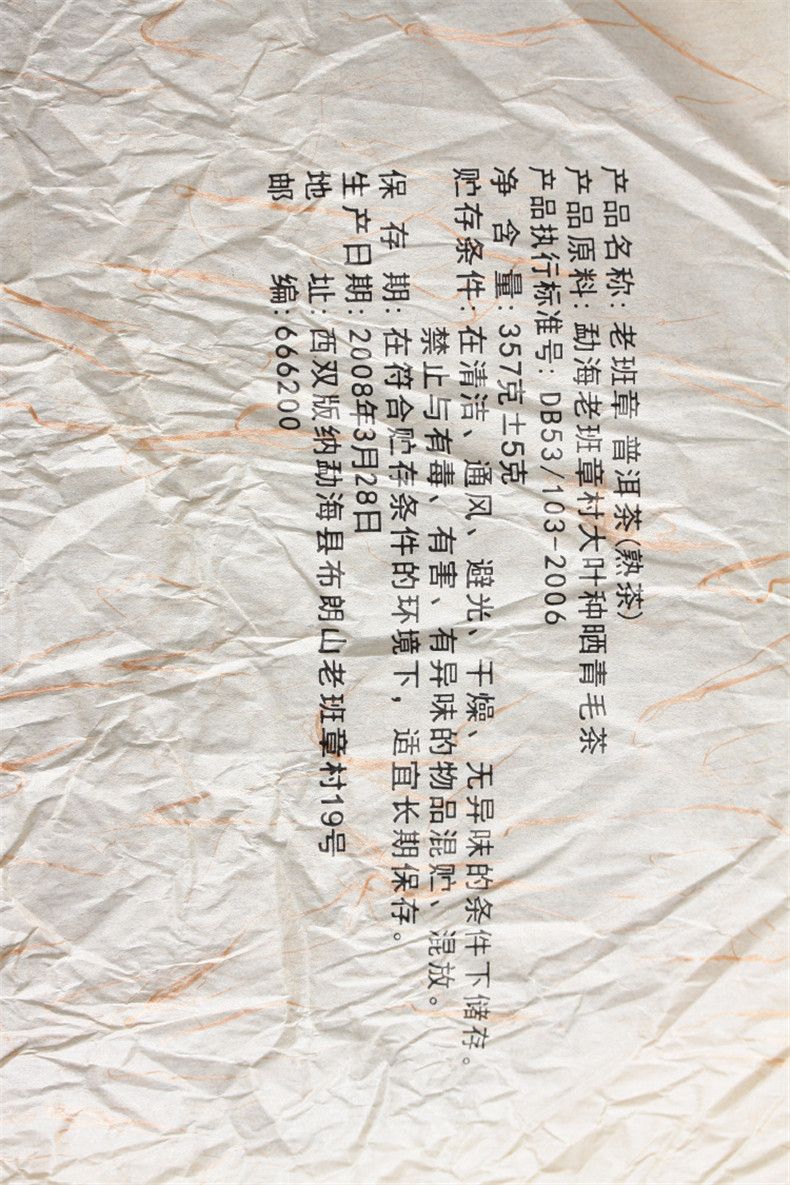 产品名称:老班章 普洱茶(熟茶)
产品原料:勐海老班章村大叶种晒青毛茶
产品执行标准号:DB53/103-2006
净含量:357克±5克
贮存条件:在清洁、通风、避光、干燥、无异味的条件下储存。
禁止与有毒、有害、有异味的物品混贮、混放。
保存期:在符合贮存条件的环境下,适宜长期保存。
生产日期:2008年3月28日
地址:西双版纳勐海县布朗山老班章村19号
邮编:666200